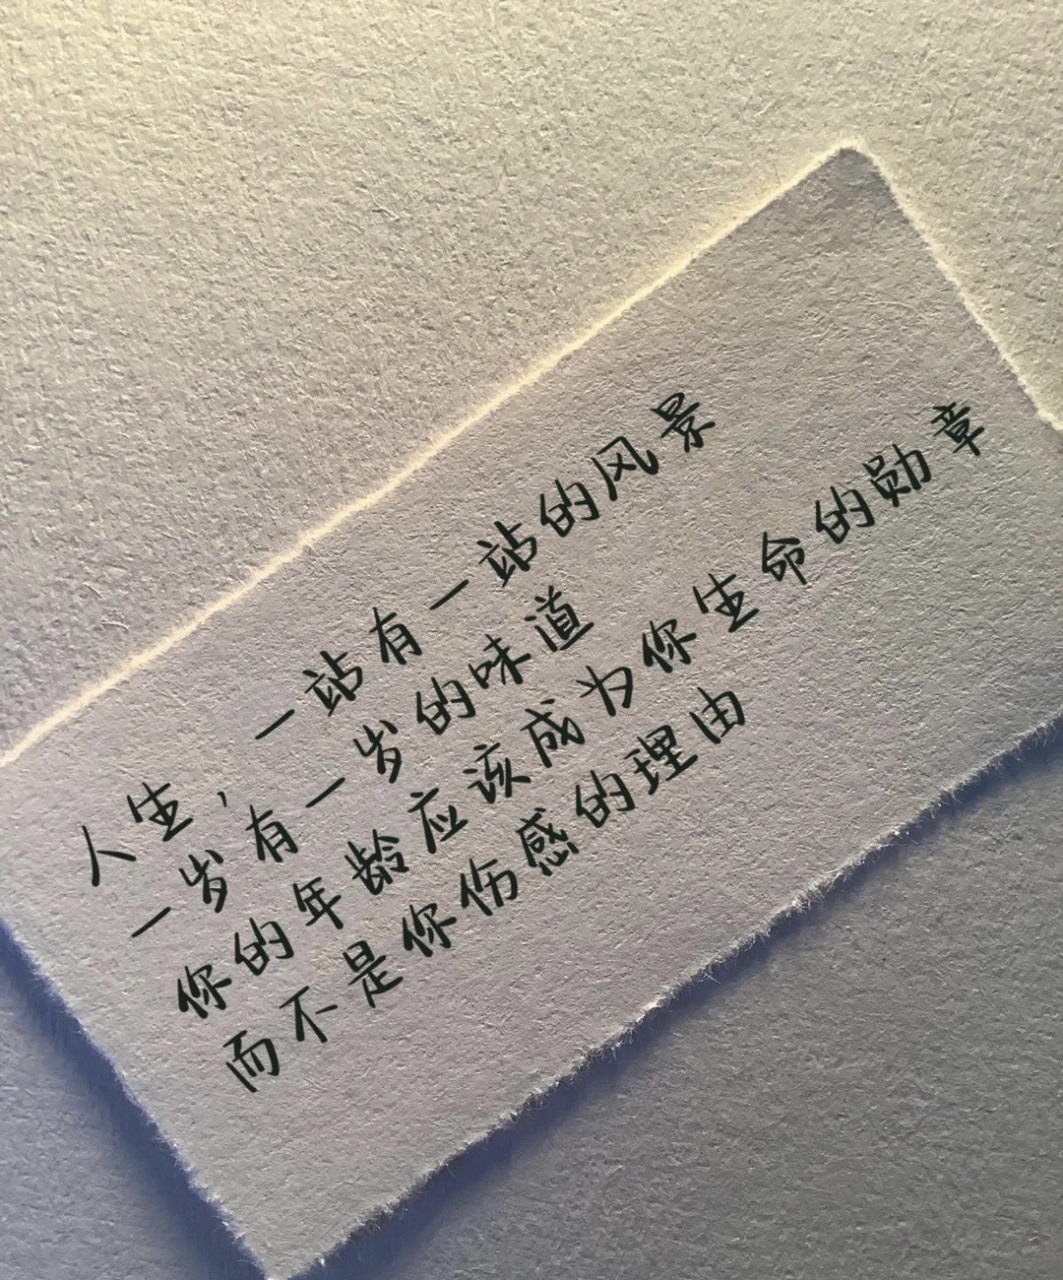 人生，一站有一站的风景
一岁有一岁的味道
你的年龄应该成为你生命的勋章
而不是你伤感的理由